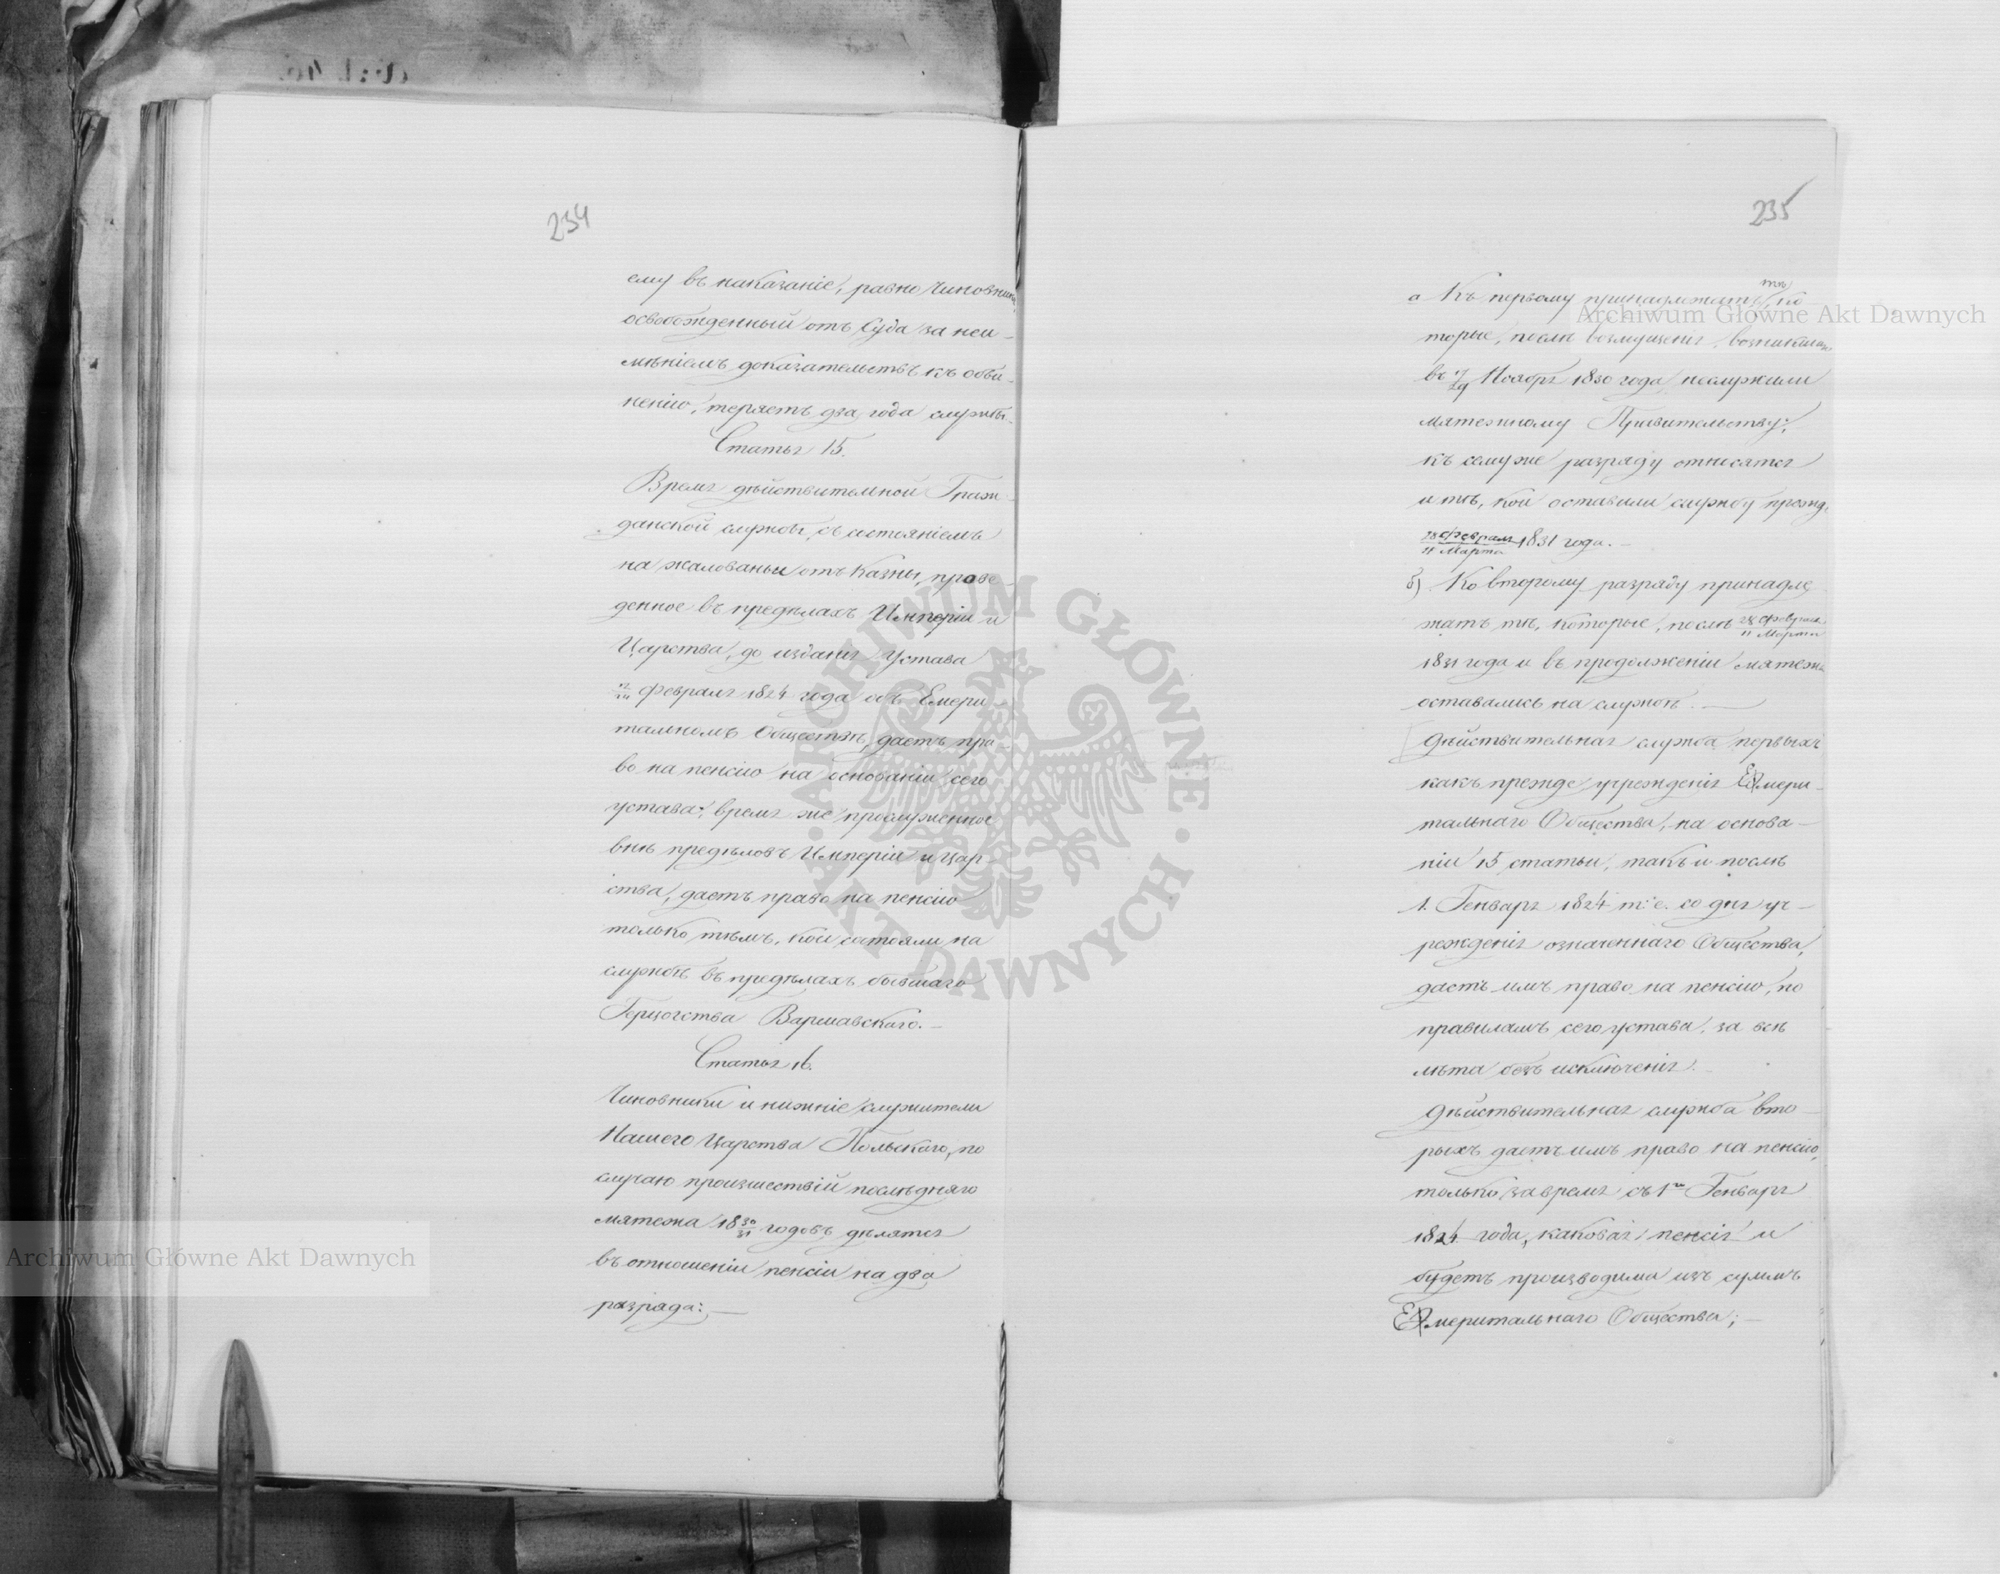 234
ему въ наказаніе, равно Чиновникъ,
освобожденный отъ Суда за неи-
мѣніемъ доказательствъ къ обви-
ненію, теряетъ два года службы.
Статья 15.
Время дѣйствительной Граж-
данской службы, съ состояніемъ
на жалованьи отъ Казны, прове-
денное въ предѣлахъ Имперіи и
Царства, до изданія Устава
12/24 Февраля 1824 года объ Емери-
тальномъ Обществѣ, даетъ пра-
во на пенсію на основаніи сего
устава; время же прослуженное
внѣ предѣловъ Имперіи и Цар-
ства, даетъ право на пенсію
только тѣмъ, кои состояли на
службѣ въ предѣлахъ бывшаго
Герцогства Варшавскаго.-
Статья 16.
Чиновники и нижніе служители
Нашего Царства Польскаго, по
случаю произшествій послѣдняго
мятежа 18 30/31 годовъ дѣлятся
въ отношеніи пенсіи на два
разряда:
235
а Къ первому принадлежатъ тѣ, ко
торые, послѣ возмущенія, возникшаго
въ 17/29 Ноября 1830 года, неслужили
мятежному Правительству;
къ семуже разряду относятся
и тѣ, кои оставили службу прежде
28 Февраля/11 Марта 1831 года.-
б) Ко второму разряду принадле
жатъ тѣ, которые, послѣ 28 Февраля/11 Марта
1831 года и въ продолженіи мятежа
оставались на службѣ.
Дѣйствительная служба первыхъ
какъ прежде учрежденія Емери-
тальнаго Общества, на основа-
ніи 15 статьи, такъ и послѣ
1. Генваря 1824 т. е. со дня уч-
режденія означеннаго Общества,
даетъ имъ право на пенсію, по
правиламъ сего устава, за всѣ
лѣта безъ исключенія.
Дѣйствительная служба вто-
рыхъ даетъ имъ право на пенсію,
только за время съ 1го Генваря
1824 года, каковая пенсія и
будетъ производима изъ суммъ
Емеритальнаго Общества;
Archiwum Główne Akt Dawnych
Archiwum Główne Akt Dawnych
ARCHIWUM GŁÓWNE · AKT DAWNYCH ·